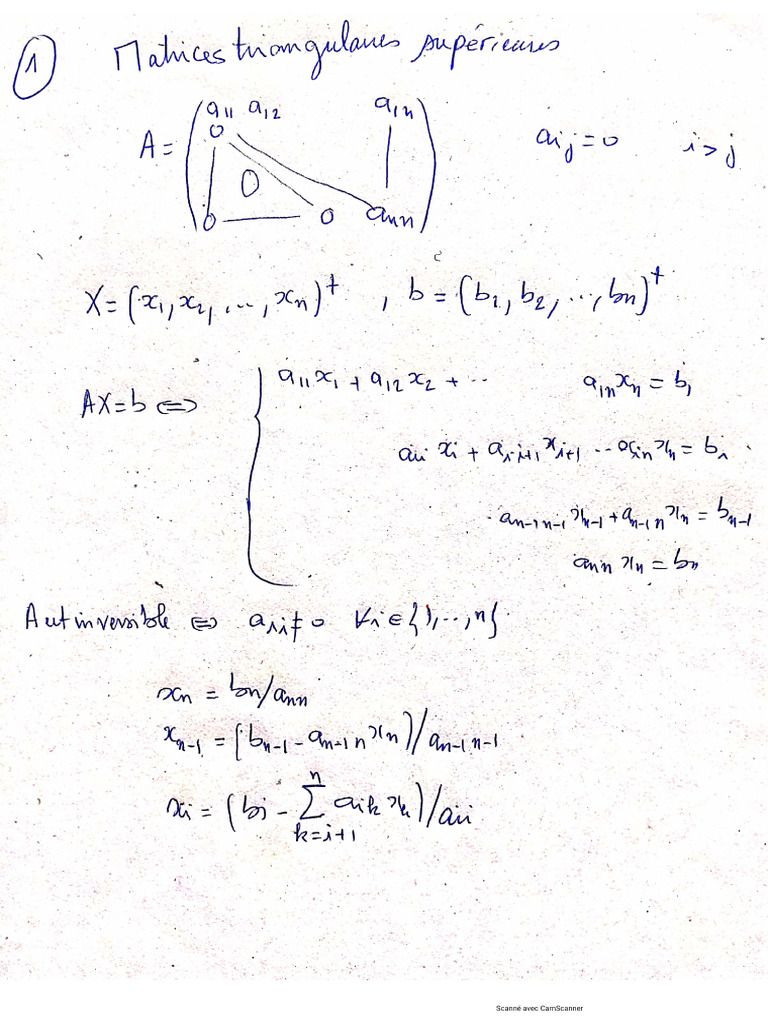 1 Matrices triangulaires supérieures
A = ( a11 a12 a1n
0
0 aij = 0 i > j
0 0 ann )
X = (x1, x2, ..., xn)^t , b = (b1, b2, ..., bn)^t
AX = b ⇔ { a11 x1 + a12 x2 + ... a1n xn = b1
aii xi + ai i+1 xi+1 ... ain xn = bi
an-1 n-1 xn-1 + an-1 n xn = bn-1
ann xn = bn
A est inversible ⇔ aii ≠ 0 ∀i ∈ {1, ..., n}
xn = bn/ann
xn-1 = (bn-1 - an-1 n xn)/an-1 n-1
xi = (bi - ∑_{k=i+1}^{n} aik xk)/aii
Scanné avec CamScanner